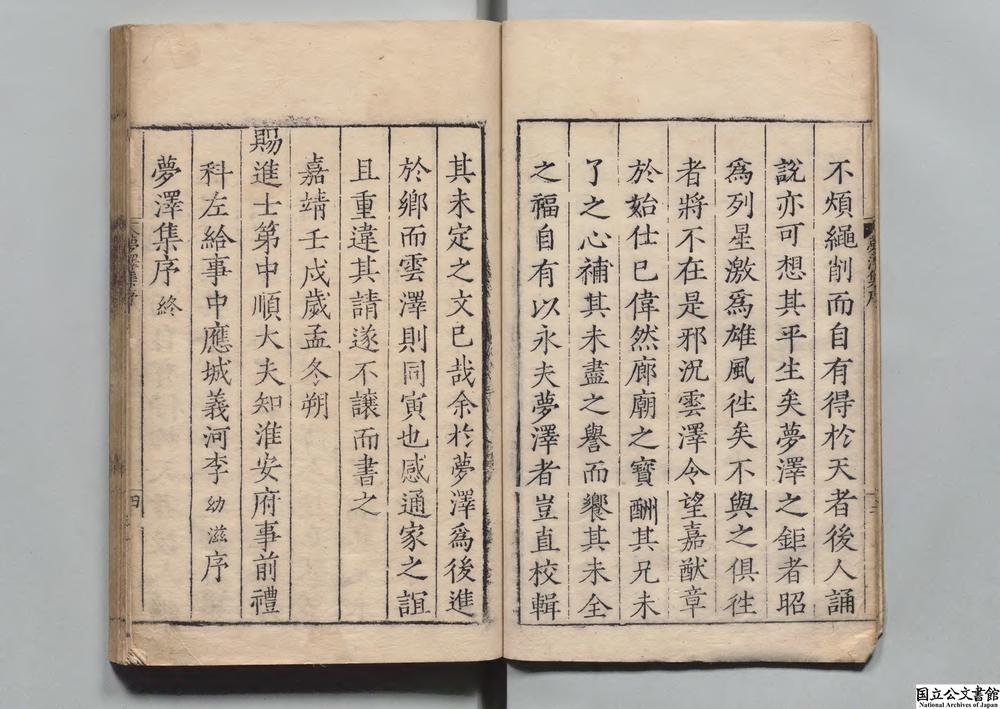 不煩繩削而自有得於天者後人誦
說亦可想其平生矣夢澤之鉅者昭
爲列星激爲雄風徃矣不與之俱徃
者將不在是邪況雲澤令望嘉猷章
於始仕已偉然廊廟之寶酬其兄未
了之心補其未盡之譽而饗其未全
之福自有以永夫夢澤者豈直校輯
其未定之文已哉余於夢澤爲後進
於鄉而雲澤則同寅也感通家之誼
且重違其請遂不讓而書之
嘉靖壬戌歲孟冬朔
賜進士第中順大夫知淮安府事前禮
科左給事中應城義河李幼滋序
夢澤集序終
夢澤集序
四
国立公文書館
National Archives of Japan